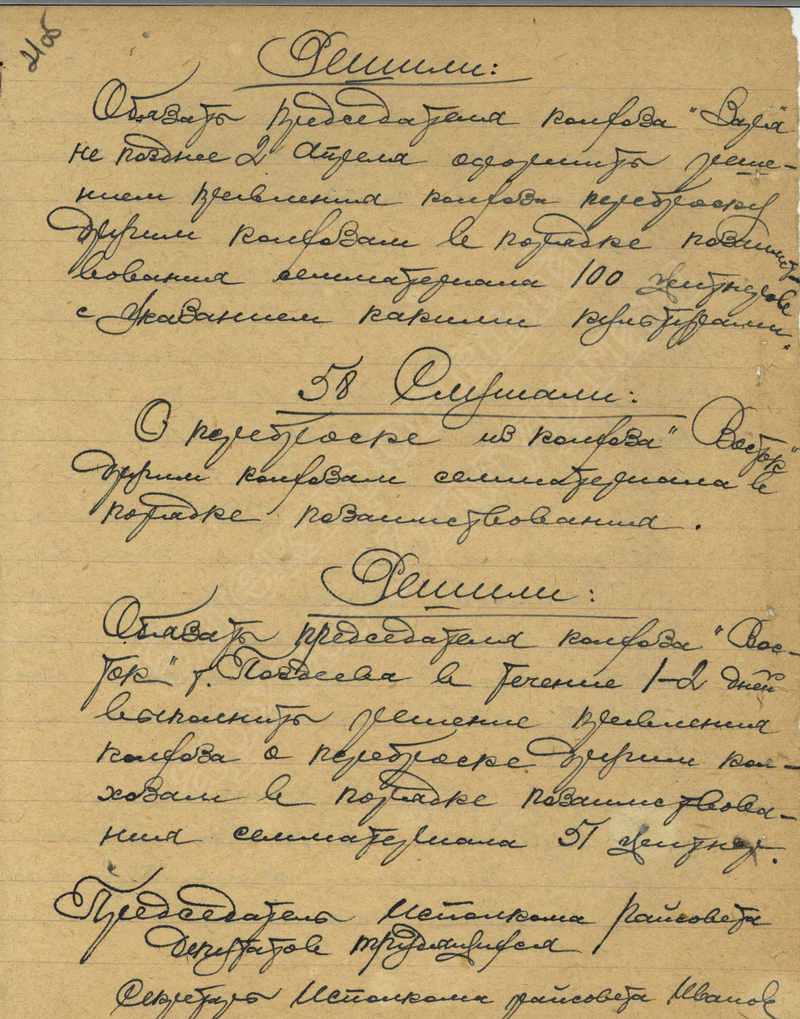 Решили:
Обязать председателя колхоза "Заря"
не позднее 2 апреля оформить реше-
нием правления колхоза переброску
другим колхозам в порядке позаимст-
вования семматериала 100 центнеров
с указанием какими культурами.
58 Слушали:
О переброске из колхоза "Восток"
другим колхозам семматериала в
порядке позаимствования.
Решили:
Обязать председателя колхоза "Вос-
ток" т. Поздеева в течение 1-2 дней
выполнить решение правления
колхоза о переброске другим кол-
хозам в порядке позаимствова-
ния семматериала 51 центнер.
Председатель Исполкома райсовета
депутатов трудящихся
Секретарь Исполкома райсовета Иванов